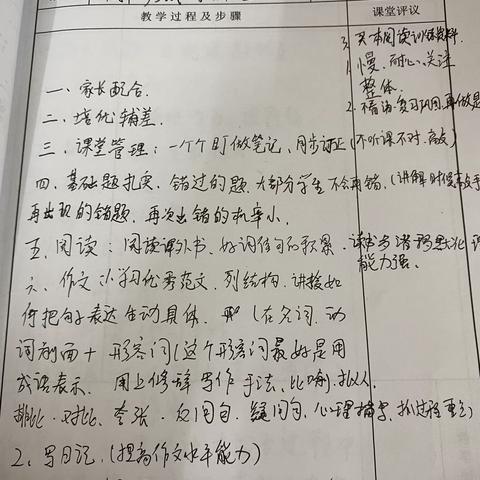 教学过程及步骤
课堂评议
3. 买一本阅读训练资料.
1. 慢、耐心、关注
整体.
一、家长配合.
2. 不看语.复习巩固.再做题
二、培优辅差.
三、课堂管理:一个个盯做笔记、同步订正(不听课不对、高效)
四、基础题扎实、错过的题、大部分学生不会再错,(讲解时
再出现的错题、再次出错的机率小.
五、阅读:阅读课外书、好词佳句积累、读书
能力强、
六、作文 1、学习优秀范文、列结构、讲授如
何把句子表达生动具体、(在名词、动
词前面+形容词(这个形容词最好是用
成语表示、用上修辞写作手法、比喻、拟人、
排比、对比、夸张、反问句、疑问句、心理描写、
2、写日记.(提高作文水平能力)